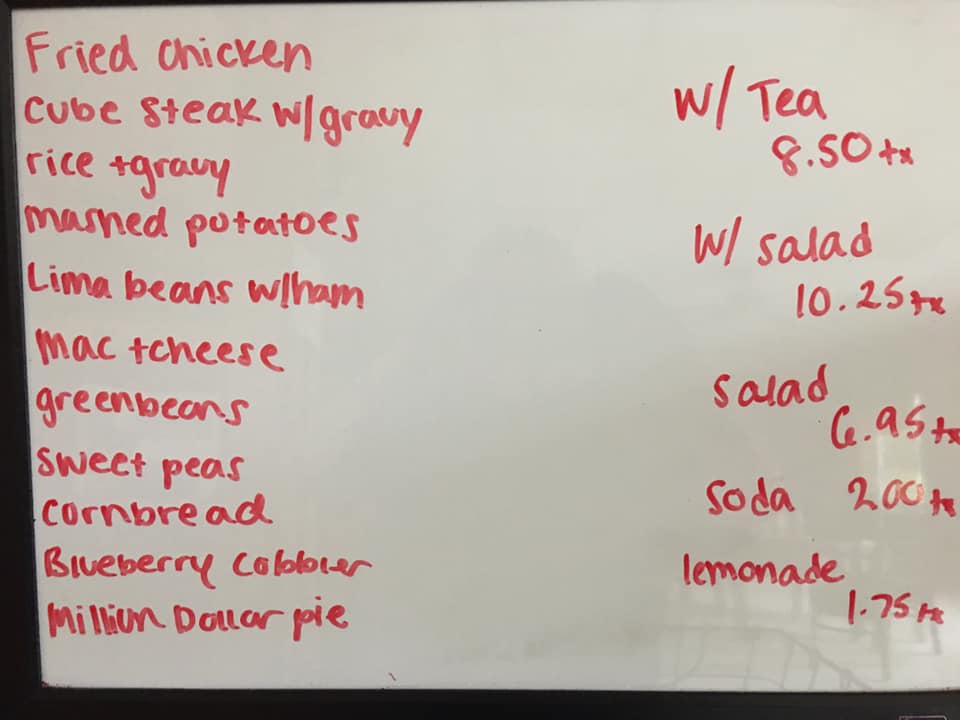 Fried chicken
cube steak w/gravy
rice +gravy
mashed potatoes
Lima beans w/ham
mac +cheese
greenbeans
sweet peas
cornbread
Blueberry cobbler
Million Dollar pie
w/ Tea
8.50 tx
w/ salad
10.25 tx
salad
6.95 tx
soda 2.00 tx
lemonade
1.75 tx